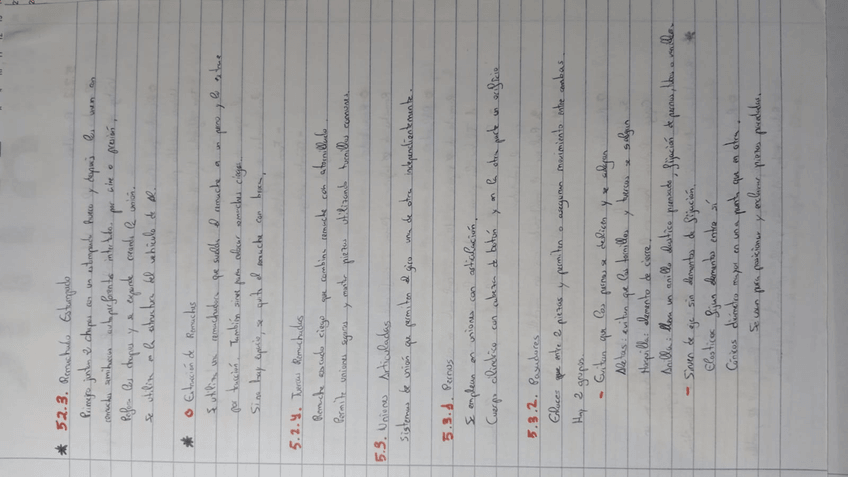 * 5.2.3. Remachado Estampado
Primero junta 2 chapas con un estampado hueco y después las unen con
remache semihueco autoperforante insertados por aire o presión.
Perfora las chapas y se expande creando la unión.
Se utiliza en la estructura del vehículo de Al.
* o Extracción de Remaches
Se utiliza una remachadora que suelda el remache a un perno y lo extrae
por tracción. También sirve para colocar remaches ciegos.
Si no hay espacio, se quita el remache con broca.
5.2.4. Tuercas Remachadas
Remache roscado ciego que combina remache con atornillado.
Permite uniones seguras y montar piezas utilizando tornillos comunes.
5.3. Uniones Articuladas
Sistemas de unión que permiten el giro una de otra independientemente.
5.3.1. Pernos
Se emplean en uniones con articulación.
Cuerpo cilíndrico con cabeza de botón y en la otra parte un orificio
5.3.2. Pasadores
Enlaces que unen 2 piezas y permiten o aseguran movimiento entre ambas.
Hay 2 grupos
- Evitan que las piezas se deslicen y se salgan
Aletas: evitan que los tornillos y tuercas se salgan
Horquilla: elemento de cierre
Anilla: lleva un anillo elástico pivotando, fijación de pernos,
- Sirven de eje sin elementos de fijación. *
Elásticos: fijan elementos entre sí
Cónicos: diámetro mayor en una punta que en otra.
Se usan para posicionar y centrar piezas partidas.